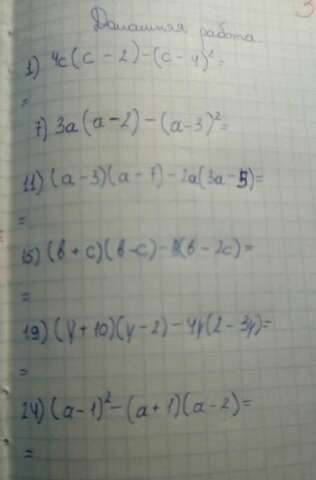 3
Домашняя работа
1) 4c(c-2)-(c-4)²=
=
7) 3a(a-2)-(a-3)²=
11) (a-3)(a-7)-2a(3a-5)=
=
15) (b+c)(b-c)-b(b-2c)=
=
19) (y+10)(y-2)-4y(2-3y)=
=
24) (a-1)²-(a+1)(a-2)=
=